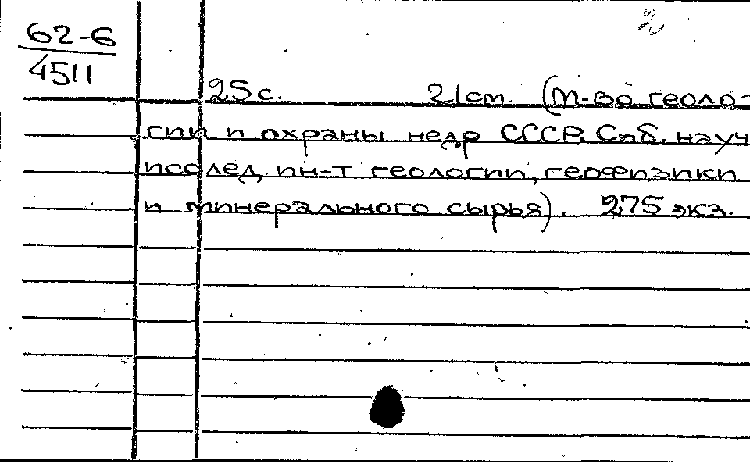 62-6
4511
25 с. 21 см. (М-во геоло-
гии и охраны недр СССР. Сиб. науч
исслед. ин-т геологии, геофизики
и минерального сырья). 275 экз.